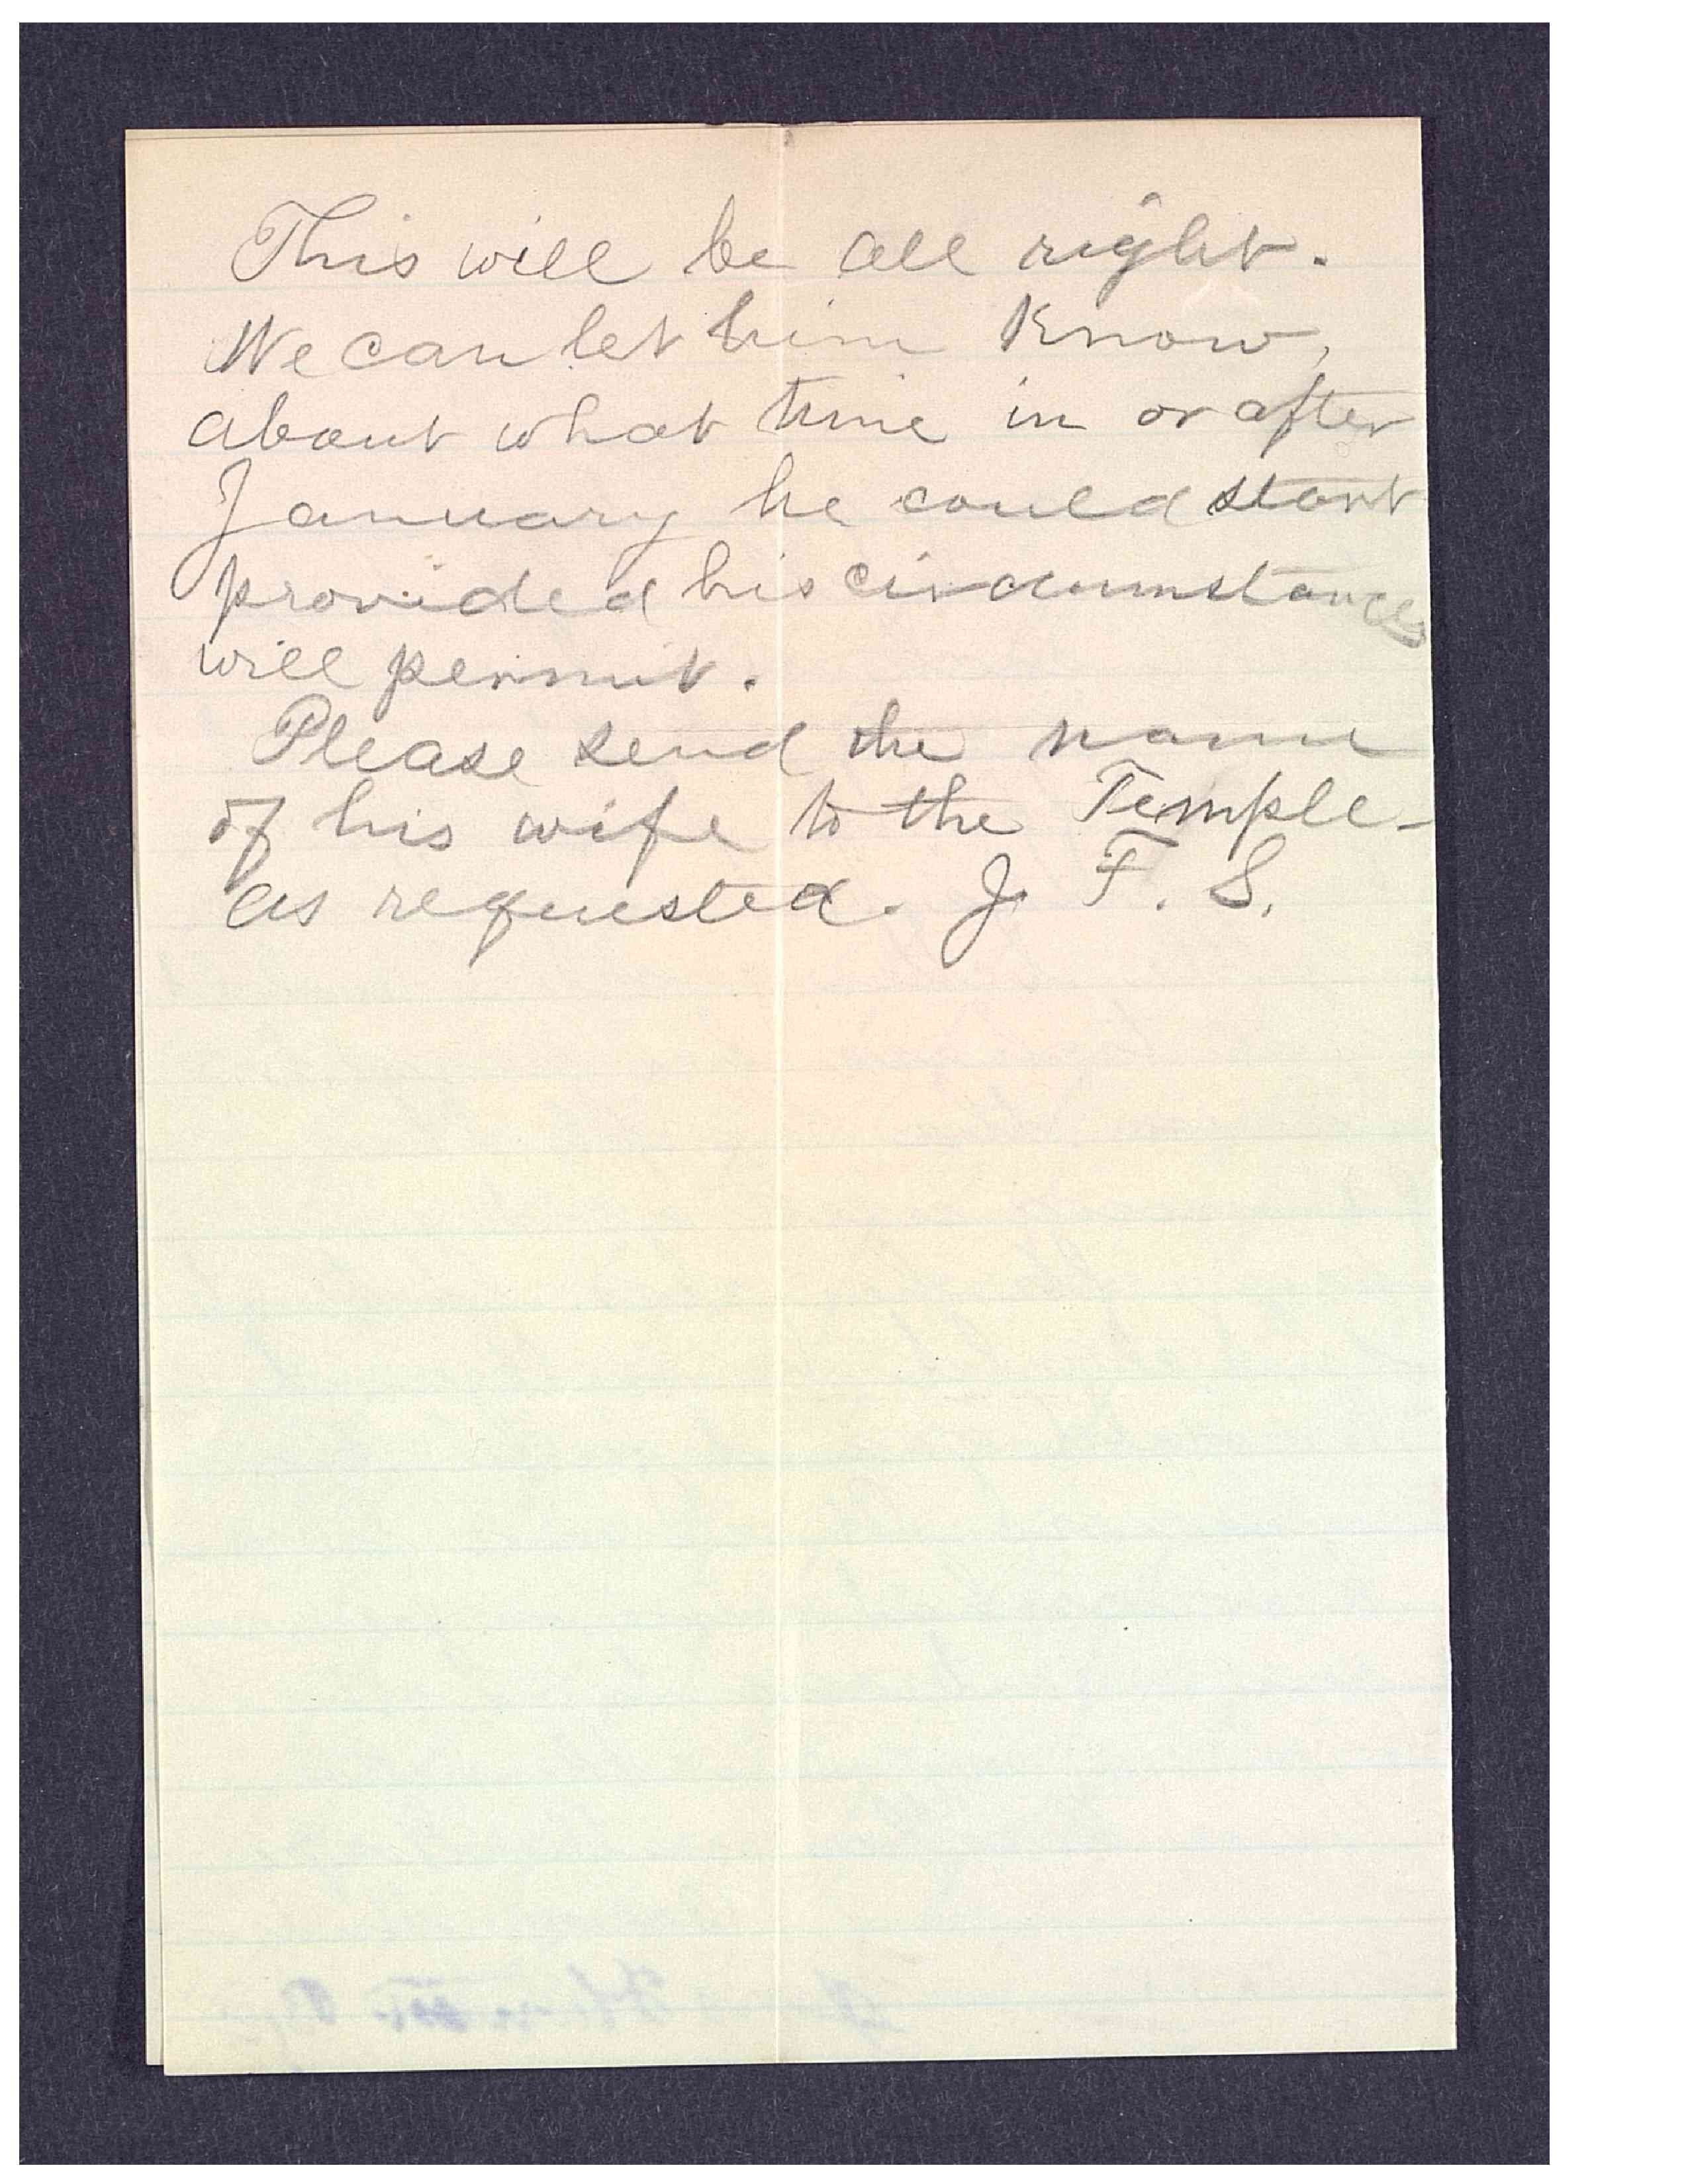 This will be all right.
We can let him know,
about what time in or after
January he could start
provided his circumstances
will permit.
Please send the name
of his wife to the Temple-
as requested. J. F. S.